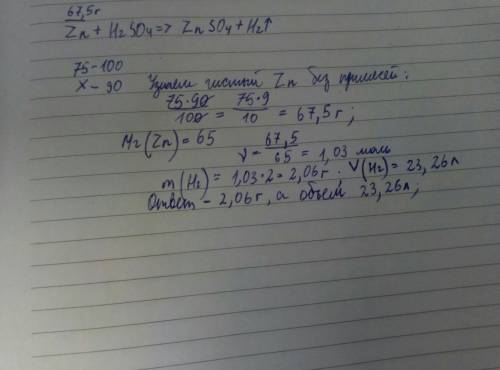 67,5г
Zn + H2SO4 => ZnSO4 + H2↑
75 - 100
x - 90 чистый Zn без примесей:
75·90/100 = 75·9/10 = 67,5 г;
Mr(Zn) = 65
ν = 67,5/65 = 1,03 моль
m(H2) = 1,03·2 = 2,06 г. V(H2) = 23,26л
Ответ - 2,06г, а объем 23,26л;